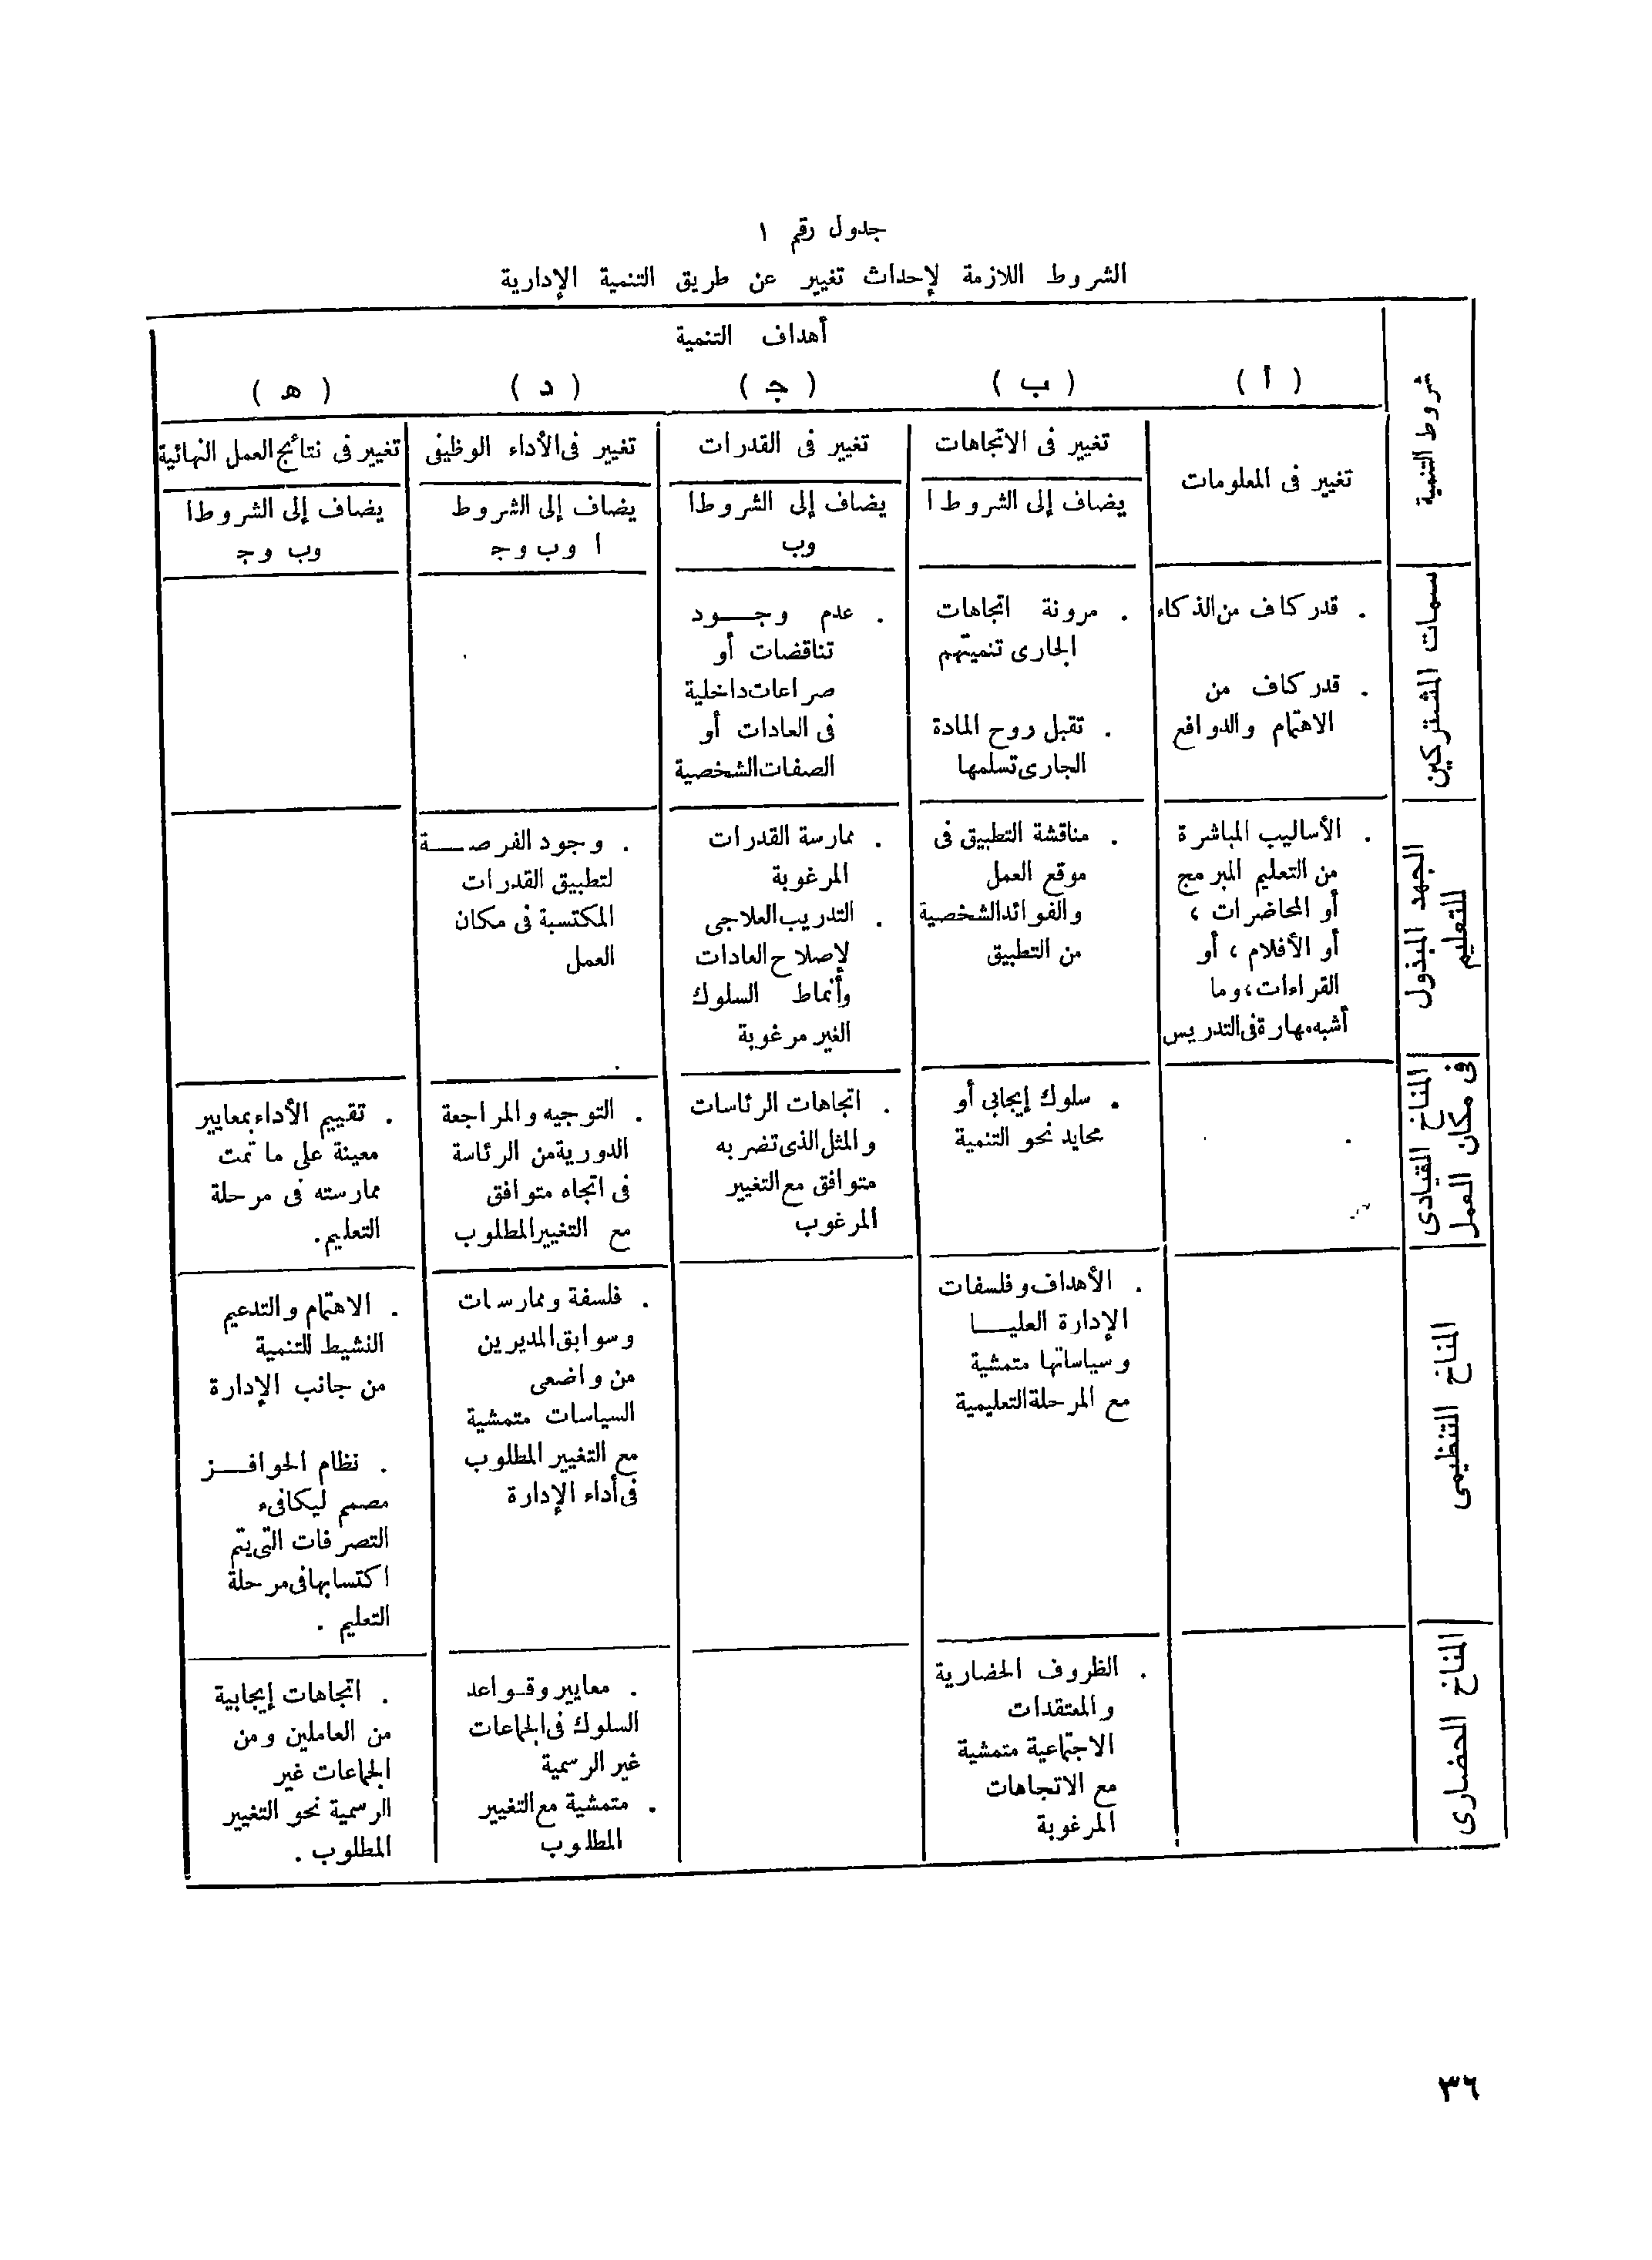 جدول رقم ١
الشروط اللازمة لإحداث تغيير عن طريق التنمية الإدارية
شروط التنمية
أهداف التنمية
( أ )
( ب )
( ج )
( د )
( ه )
تغيير فى المعلومات
تغيير فى الاتجاهات
يضاف إلى الشروط ا
تغيير فى القدرات
يضاف إلى الشروط ا
وب
تغيير فى الأداء الوظيفى
يضاف إلى الشروط
ا وب وج
تغيير فى نتائج العمل النهائية
يضاف إلى الشروط ا
وب وج
سمات المشتركين
. قدر كاف من الذكاء
. قدر كاف من
الاهتمام والدوافع
. مرونة اتجاهات
الجارى تنميتهم
. تقبل روح المادة
الجارى تسلمها
. عدم وجــود
تناقضات أو
صراعات داخلية
فى العادات أو
الصفات الشخصية
الجهد المبذول
للتعليم
. الأساليب المباشرة
من التعليم المبرمج
أو المحاضرات ،
أو الأفلام ، أو
القراءات ، وما
أشبه مهارة فى التدريس
. مناقشة التطبيق فى
موقع العمل
والفوائد الشخصية
من التطبيق
. ممارسة القدرات
المرغوبة
. التدريب العلاجى
لإصلاح العادات
وأنماط السلوك
الغير مرغوبة
. وجود الفرصــة
لتطبيق القدرات
المكتسبة فى مكان
العمل
المناخ القيادى
فى مكان العمل
. سلوك إيجابى أو
محايد نحو التنمية
. اتجاهات الرئاسات
والمثل الذى تضربه
متوافق مع التغيير
المرغوب
. التوجيه والمراجعة
الدورية من الرئاسة
فى اتجاه متوافق
مع التغيير المطلوب
. تقييم الأداء بمعايير
معينة على ما تمت
ممارسته فى مرحلة
التعليم .
المناخ التنظيمى
. الأهداف وفلسفات
الإدارة العليــا
وسياساتها متمشية
مع المرحلة التعليمية
. فلسفة وممارسات
وسوابق المديرين
من واضعى
السياسات متمشية
مع التغيير المطلوب
فى أداء الإدارة
. الاهتمام والتدعيم
النشيط للتنمية
من جانب الإدارة
. نظام الحوافــز
مصمم ليكافىء
التصرفات التى يتم
اكتسابها فى مرحلة
التعليم .
المناخ الحضارى
. الظروف الحضارية
والمعتقدات
الاجتماعية متمشية
مع الاتجاهات
المرغوبة
. معايير وقـواعد
السلوك فى الجماعات
غير الرسمية
. متمشية مع التغيير
المطلوب
. اتجاهات إيجابية
من العاملين ومن
الجماعات غير
الرسمية نحو التغيير
المطلوب .
٣٦